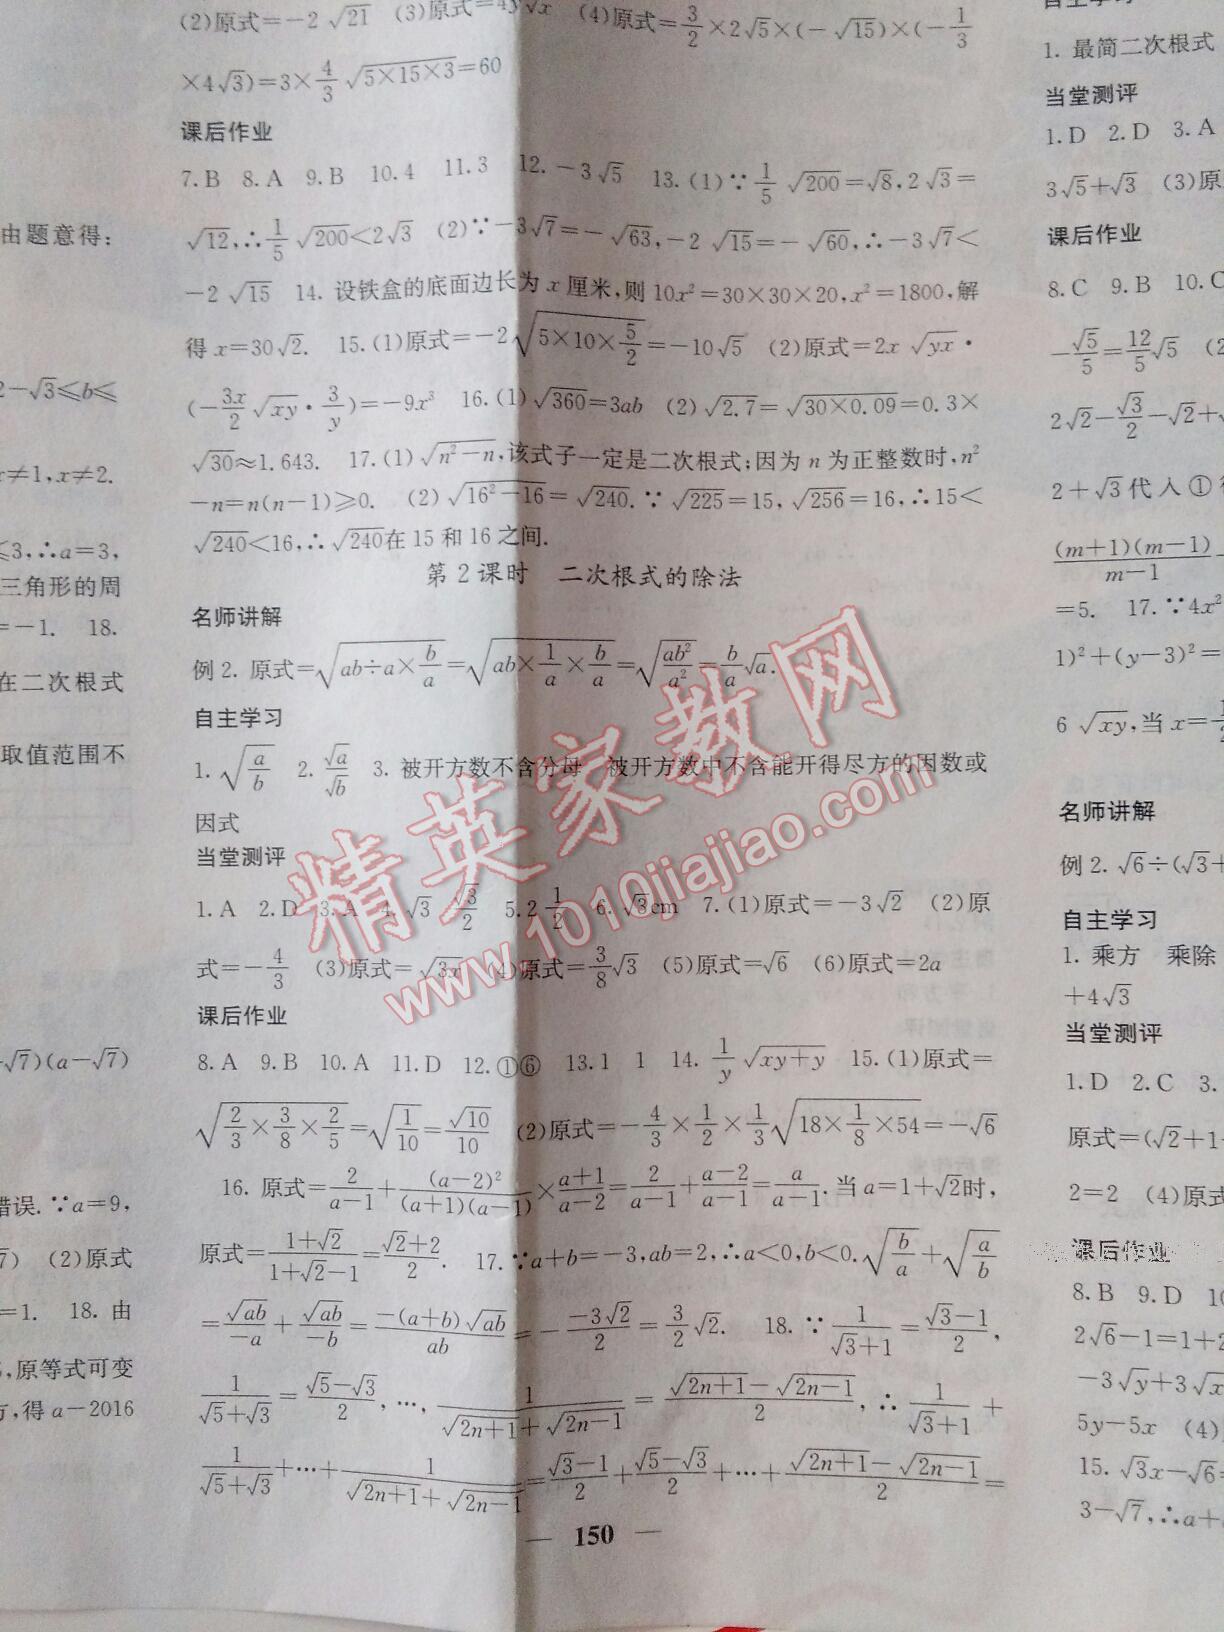 (2)原式=-2√21 (3)原式=4y√x (4)原式=3/2×2√5×(-√15)×(-1/3
×4√3)=3×4/3√(5×15×3)=60
课后作业
7.B 8.A 9.B 10.4 11.3 12.-3√5 13.(1)∵1/5√200=√8,2√3=
√12,∴1/5√200<2√3 (2)∵-3√7=-√63,-2√15=-√60,∴-3√7<
-2√15 14.设铁盒的底面边长为x厘米,则10x²=30×30×20,x²=1800,解
得x=30√2. 15.(1)原式=-2√(5×10×5/2)=-10√5 (2)原式=2x√yx·
(-3x/2√xy·3/y)=-9x³ 16.(1)√360=3ab (2)√2.7=√(30×0.09)=0.3×
√30≈1.643. 17.(1)√(n²-n),该式子一定是二次根式;因为n为正整数时,n²
-n=n(n-1)≥0. (2)√(16²-16)=√240.∵√225=15,√256=16,∴15<
√240<16,∴√240在15和16之间.
第2课时 二次根式的除法
名师讲解
例2.原式=√(ab÷a×b/a)=√(ab×1/a×b/a)=√(ab²/a²)=b/a√a.
自主学习
1.√(a/b) 2.√a/√b 3.被开方数不含分母 被开方数中不含能开得尽方的因数或
因式
当堂测评
1.A 2.D 3.A 4.√3 √3/2 5.2 1/2 6.√3cm 7.(1)原式=-3√2 (2)原
式=-4/3 (3)原式=√3x (4)原式=3/8√3 (5)原式=√6 (6)原式=2a
课后作业
8.A 9.B 10.A 11.D 12.①⑥ 13.1 1 14.1/y√(xy+y) 15.(1)原式=
√(2/3×3/8×2/5)=√(1/10)=√10/10 (2)原式=-4/3×1/2×1/3√(18×1/8×54)=-√6
16.原式=2/(a-1)+(a-2)²/((a+1)(a-1))×(a+1)/(a-2)=2/(a-1)+(a-2)/(a-1)=a/(a-1).当a=1+√2时,
原式=(1+√2)/(1+√2-1)=(√2+2)/2. 17.∵a+b=-3,ab=2,∴a<0,b<0.√(b/a)+√(a/b)
=√ab/-a+√ab/-b=-(a+b)√ab/ab=--3√2/2=3/2√2. 18.∵1/(√3+1)=(√3-1)/2,
1/(√5+√3)=(√5-√3)/2,…,1/(√(2n+1)+√(2n-1))=(√(2n+1)-√(2n-1))/2,∴1/(√3+1)+
1/(√5+√3)+…+1/(√(2n+1)+√(2n-1))=(√3-1)/2+(√5-√3)/2+…+(√(2n+1)-√(2n-1))/2=
— 150 —
由题意得:
2-√3≤b≤
x≠1,x≠2.
≤3,∴a=3,
三角形的周
=-1. 18.
在二次根式
取值范围不
√7)(a-√7)
错误.∵a=9,
7) (2)原式
=1. 18.由
,原等式可变
方,得a-2016
1.最简二次根式
当堂测评
1.D 2.D 3.A
3√5+√3 (3)原
课后作业
8.C 9.B 10.C
-√5/5=12/5√5 (2
2√2-√3/2-√2+
2+√3代入①
(m+1)(m-1)/(m-1)
=5. 17.∵4x²
1)²+(y-3)²=
6√xy,当x=
名师讲解
例2.√6÷(√3+
自主学习
1.乘方 乘除
+4√3
当堂测评
1.D 2.C 3.
原式=(√2+1
2=2 (4)原式
课后作业
8.B 9.D 10
2√6-1=1+2
-3√y+3√x
5y-5x (4)
15.√3x-√6=
3-√7,∴a+
精英家教网
www.1010jiajiao.com